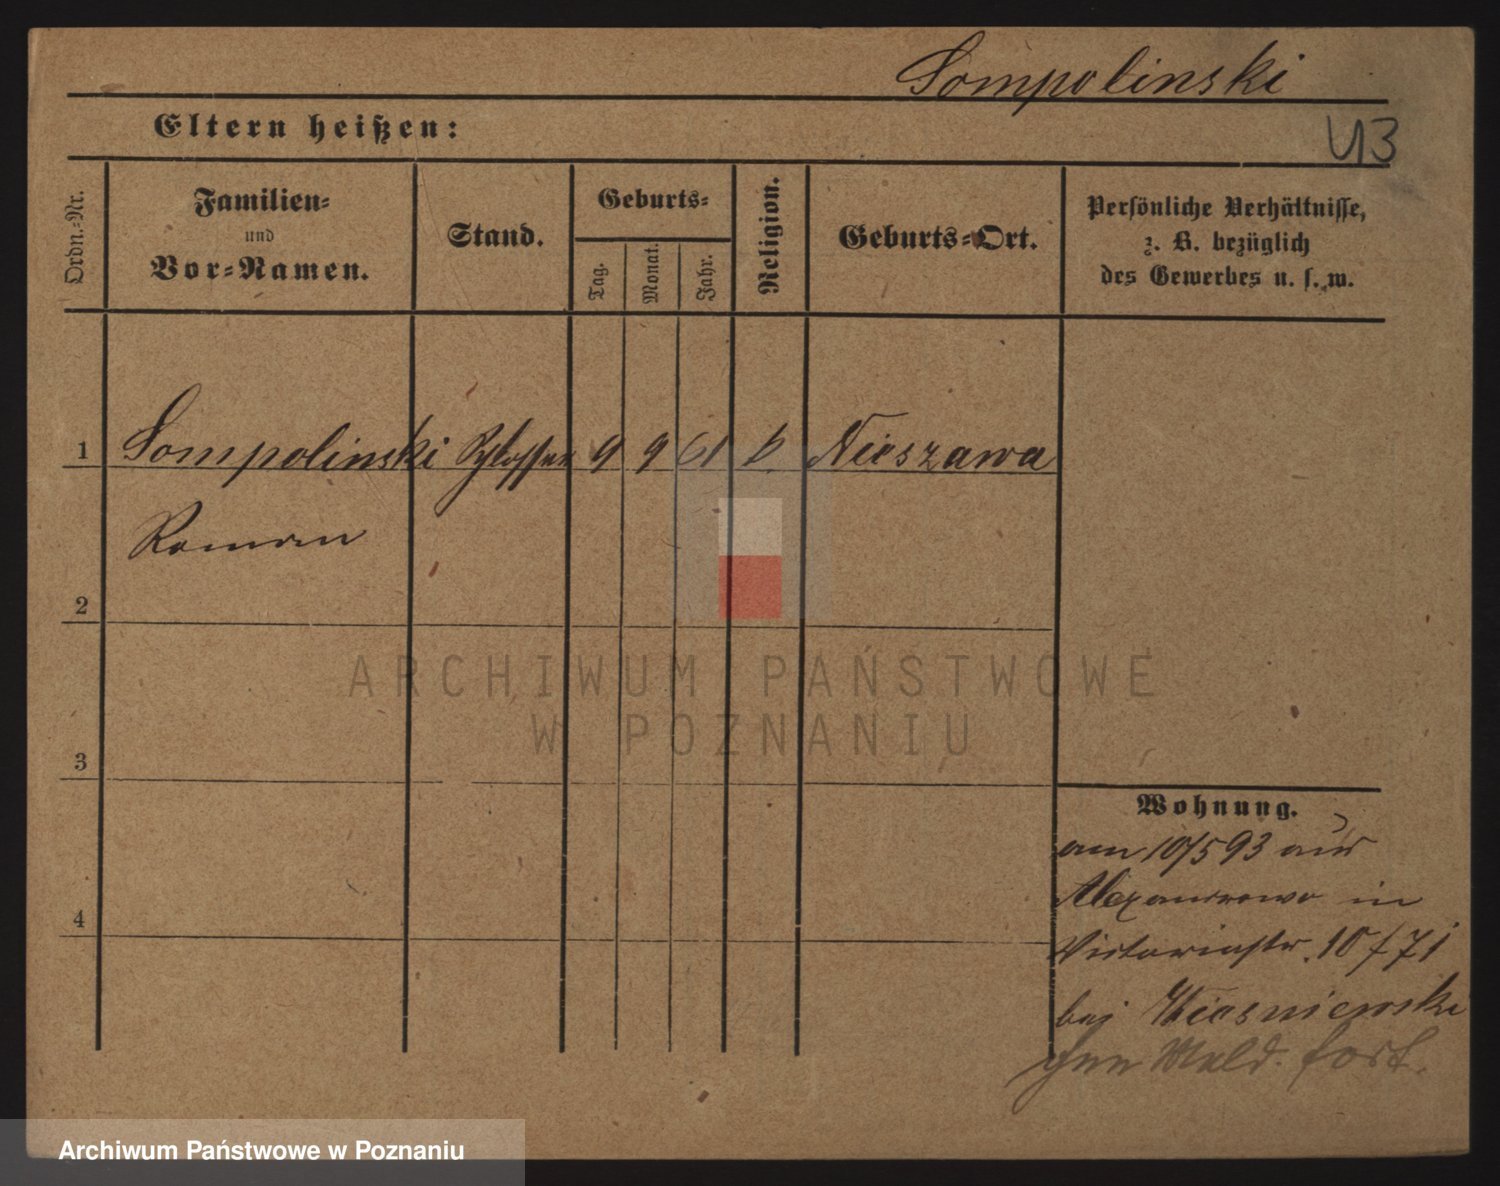 Sompolinski
Eltern heißen:
U3
Ordn.-Nr.
Familien-
und
Vor-Namen.
Stand.
Geburts-
Tag.
Monat.
Jahr.
Religion.
Geburts-Ort.
Persönliche Verhältnisse,
z. B. bezüglich
des Gewerbes u. s. w.
1 Sompolinski Schlosser 9 9 61 k. Nieszawa
Roman
2
3
4
Wohnung.
am 10/5 93 aus
Alexandrowo in
Victoriastr. 10 / 7 I
bei Wiesniewski
ohne Meld. fort.
ARCHIWUM PAŃSTWOWE
W POZNANIU
Archiwum Państwowe w Poznaniu